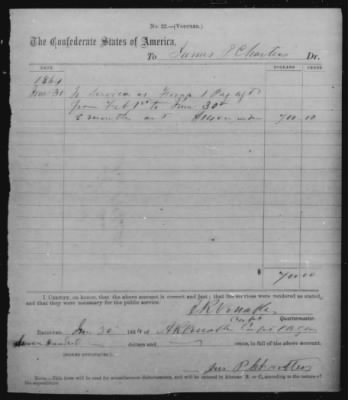 No. 22.—(Voucher.)
The Confederate States of America,
To James P Charters Dr.
DATE. DOLLARS CENTS
1864
June 30 To Services as Forage & Pay agt
from Feb 1st to June 30th
5 months at $ per month 700 00
700 00
I CERTIFY, on honor, that the above account is correct and just; that the services were rendered as stated, and that they were necessary for the public service.
Quartermaster.
RECEIVED, June 30 1864, of
Seven Hundred dollars and cents, in full of the above account.
(SIGNED DUPLICATES.)
Jas P Charters
NOTE.—This form will be used for miscellaneous disbursements, and will be entered in Abstract B. or C, according to the nature of the expenditure.